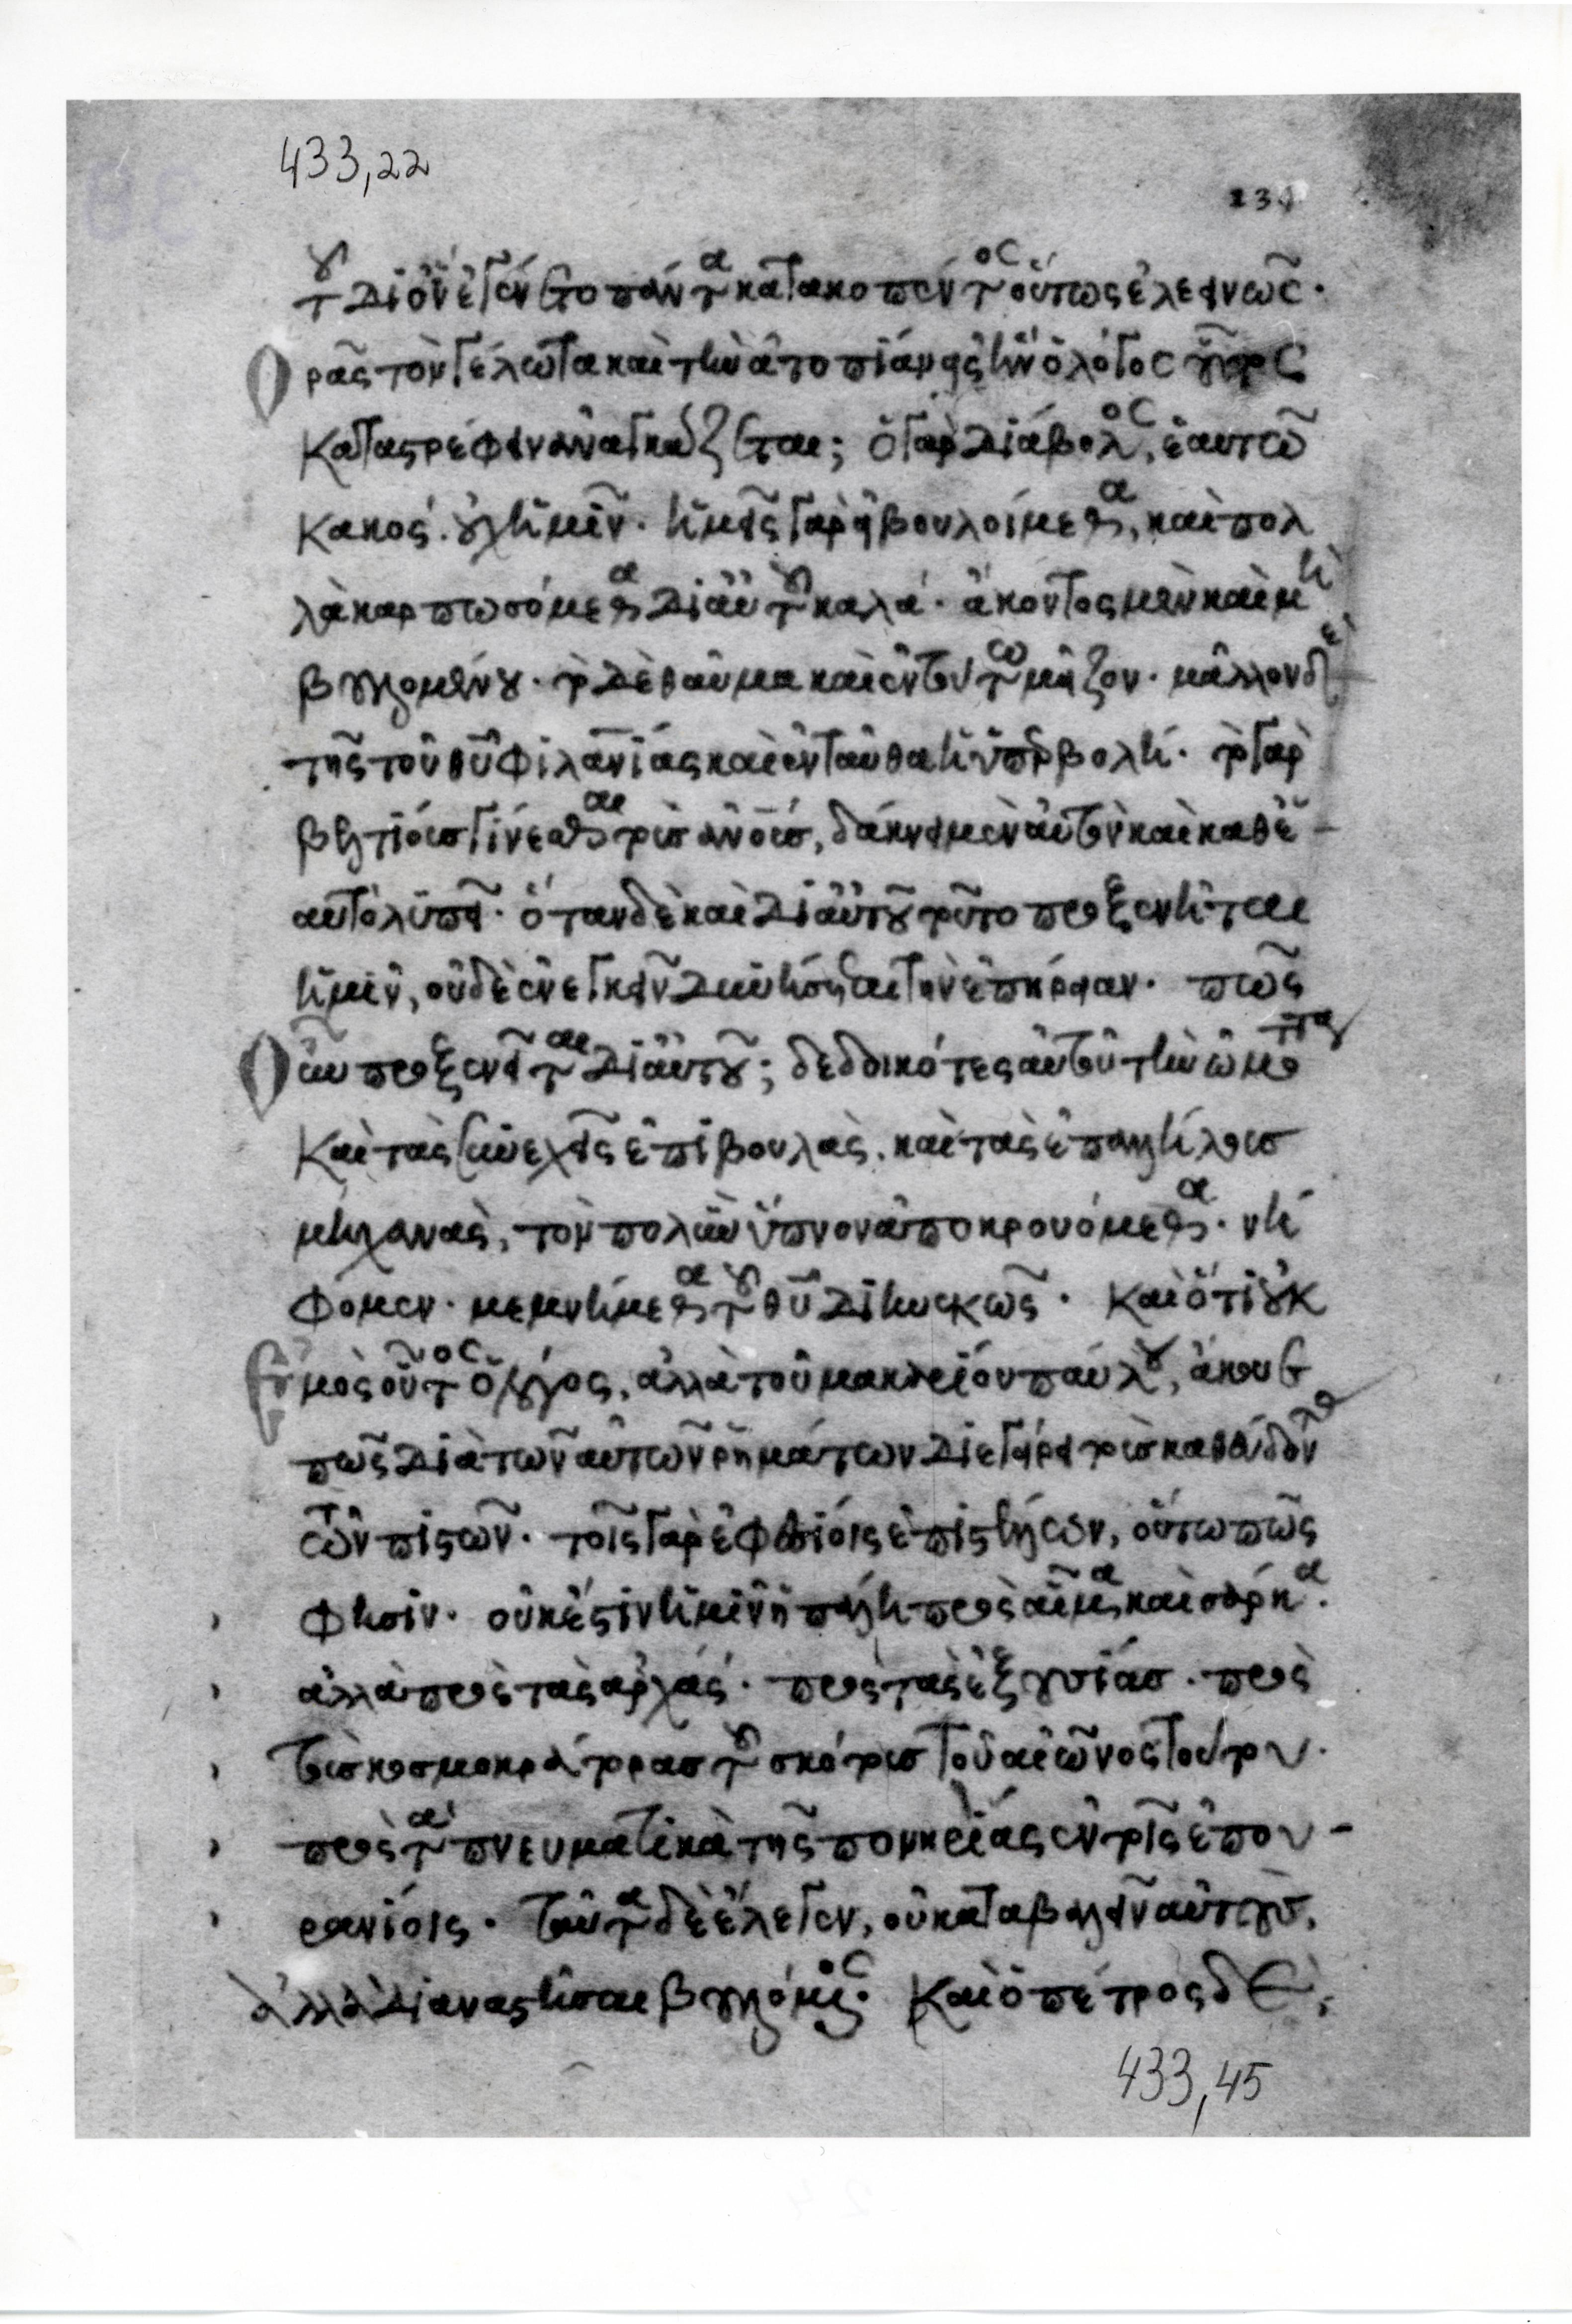 433,22
231
τοῦ δι' ὃν ἐγένετο πάντα κατακοπέντος οὕτως ἐλεεινῶς·
Ὁρᾷς τὸν γέλωτα καὶ τὴν ἀτοπίαν εἰς ἣν ὁ λόγος
καταστρέφειν ἀναγκάζεται; ὁ γὰρ διάβολος, ἑαυτῷ
κακός· οὐχ ἡμῖν· ἡμεῖς γὰρ εἰ βουλοίμεθα, καὶ πολ
λὰ καρπωσόμεθα δι' αὐτοῦ καλά· ἄκοντος μὲν καὶ μὴ
βουλομένου· τὸ δὲ θαῦμα καὶ ἐν τούτω μεῖζον· μᾶλλον δὲ
τῆς τοῦ θῦ φιλανίας καὶ ἐνταῦθα ἡ ὑπερβολή· τὸ γὰρ
βελτίους γίνεσθαι τοὺς ἀνους, δάκνει μὲν αὐτὸν καὶ καθ' ἑ-
αυτὸ λυπεῖ· ὅταν δὲ καὶ δι' αὐτοῦ τοῦτο προξενῆται
ἡμῖν, οὐδὲ ἐνεγκεῖν δυνήσεται τὴν ἐπήρειαν· πῶς
οὖν προξενεῖται δι' αὐτοῦ; δεδοικότες αὐτοῦ τὴν ὠμότητα
καὶ τὰς συνεχεῖς ἐπιβουλὰς, καὶ τὰς ἐπαλλήλους
μηχανὰς, τὸν πολὺν ὕπνον ἀποκρουόμεθα· νή
φομεν· μεμνήμεθα τοῦ θῦ διηνεκῶς· Καὶ ὅτι οὐκ
ἐμὸς οὗτος ὁ λόγος, ἀλλὰ τοῦ μακαρίου παύλου, ἄκουε
πῶς διὰ τῶν αὐτῶν ῥημάτων διεγείρει τοὺς καθεύδοντας
τῶν πιστῶν· τοῖς γὰρ ἐφεσίοις ἐπιστέλλων, οὕτω πῶς
φησίν· οὐκ ἔστιν ἡμῖν ἡ πάλη πρὸς αἷμα καὶ σάρκα·
ἀλλὰ πρὸς τὰς ἀρχάς· πρὸς τὰς ἐξουσίας· πρὸς
τοὺς κοσμοκράτορας τοῦ σκότους τοῦ αἰῶνος τούτου·
πρὸς τὰ πνευματικὰ τῆς πονηρίας ἐν τοῖς ἐπου-
ρανίοις· ταῦτα δὲ ἔλεγεν, οὐ καταβαλεῖν αὐτοὺς,
ἀλλὰ διαναστῆσαι βουλόμενος· Καὶ ὁ πέτρος δὲ,
433,45